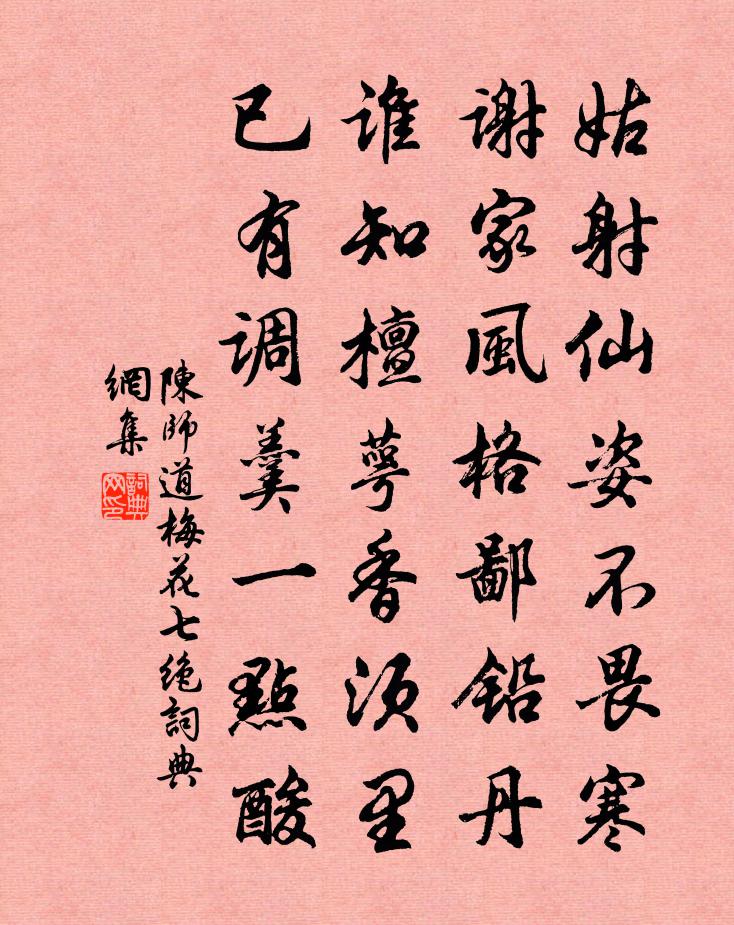 姑射仙姿不畏寒
谢家風格鄙铅丹
谁知檀萼香须里
已有调羹一點酸
陳師道梅花七绝詞典
網集
詞典
网印